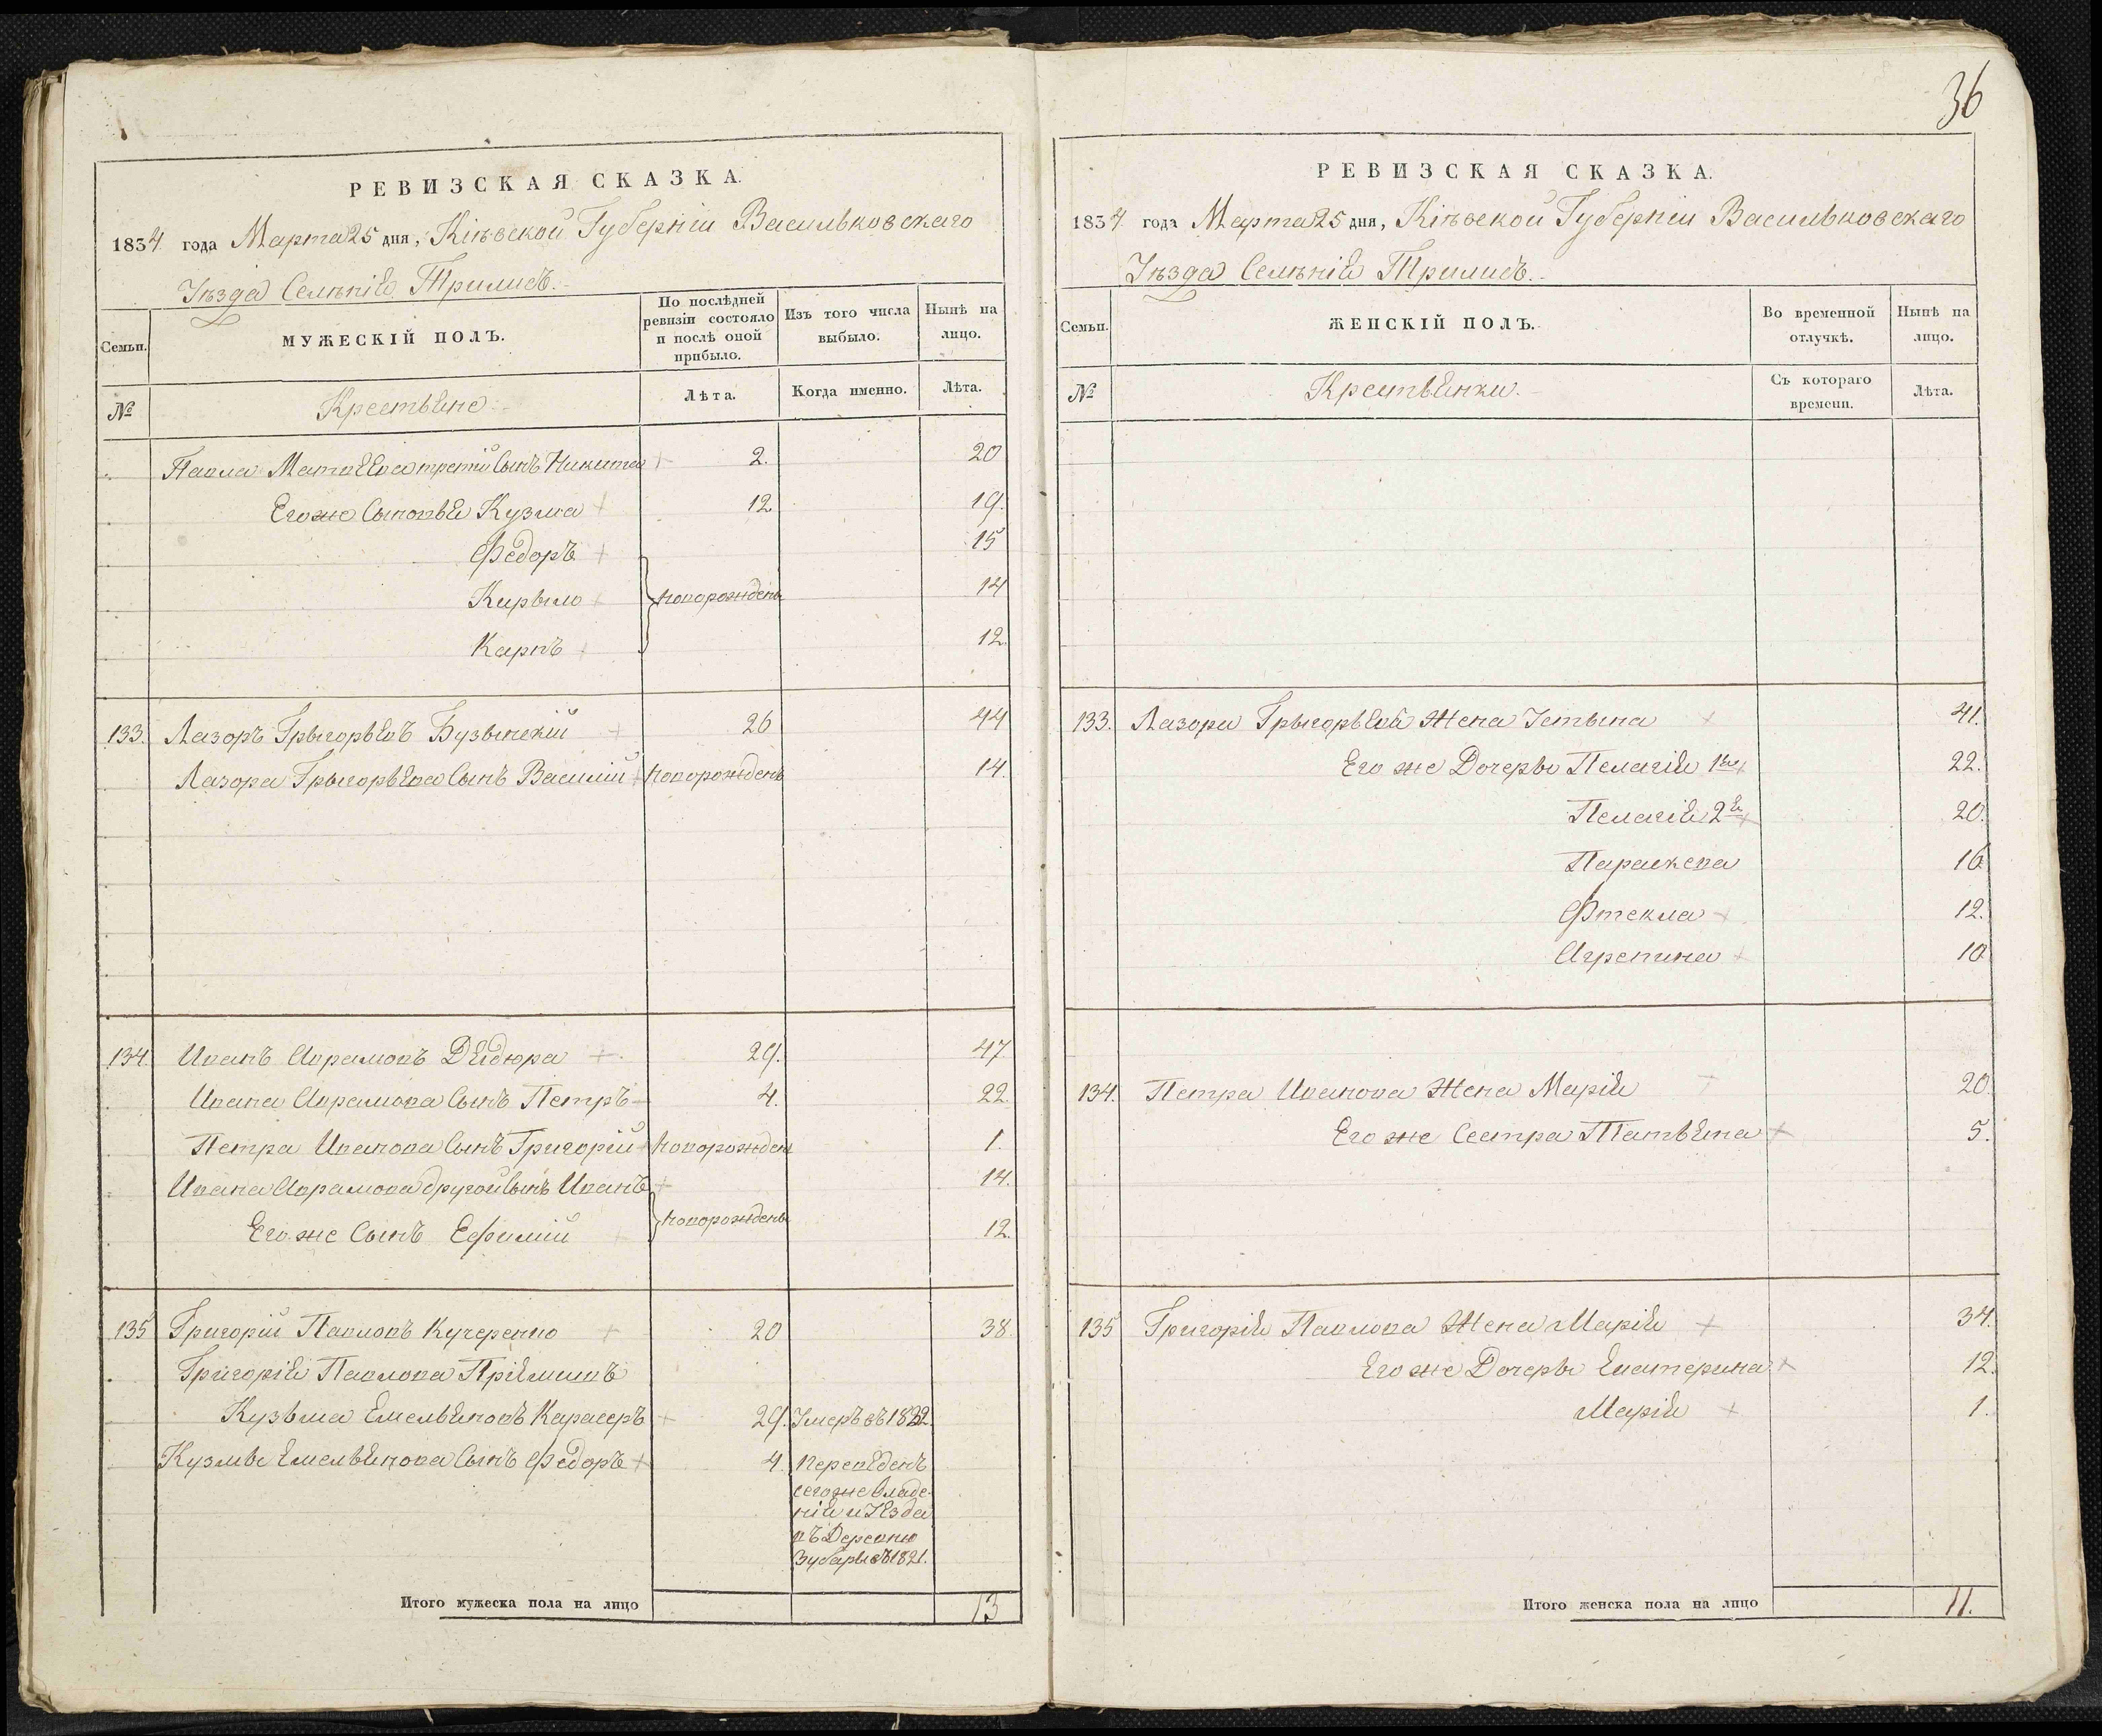 36
РЕВИЗСКАЯ СКАЗКА.
1834 года Марта 25 дня, Кіевской Губерніи Васильковскаго
Уѣзда Селѣнія Трилисъ.
Семьи. МУЖЕСКІЙ ПОЛЪ. По послѣдней ревизіи состояло и послѣ оной прибыло. Изъ того числа выбыло. Нынѣ на лицо.
№ Крестьяне Лѣта. Когда именно. Лѣта.
Павла Матвѣева третій Сынъ Никита 2. 20
Егоже Сыновья Кузма 12 19.
Федоръ 15
Кирыло новорожденъ 14
Карпъ 12.
133. Лазоръ Грыгорьевъ Бузынскій 26 44
Лазора Грыгорьева Сынъ Василій новорожденъ 14.
134. Иванъ Аврамовъ Дейдюра 29. 47
Ивана Аврамова Сынъ Петръ 4. 22.
Петра Иванова Сынъ Григорій новорожден 1.
Ивана Аврамова другой Сынъ Иванъ 14.
Его же Сынъ Ефимій новорожденъ 12.
135 Григорій Павловъ Кучеренко 20 38.
Григорія Павлова Пріемышъ
Кузьма Емельяновъ Карасеръ 29. Умеръ въ 1832.
Кузмы Емельянова Сынъ Федоръ 4. переведенъ
сегоже владе-
нія и Уезда
въ Деревню
Зубары въ 1821.
Итого мужеска пола на лицо 13
РЕВИЗСКАЯ СКАЗКА.
1834 года Марта 25 дня, Кіевской Губерніи Васильковскаго
Уѣзда Селѣнія Трилисъ.
Семьи. ЖЕНСКІЙ ПОЛЪ. Во временной отлучкѣ. Нынѣ на лицо.
№ Крестьянки. Съ котораго времени. Лѣта.
133. Лазора Грыгорьева Жена Устына 41.
Его же Дочеры Пелагія 1я 22.
Пелагія 2я 20.
Параскева 16
Фтекла 12.
Агрепина 10
134. Петра Иванова Жена Марія 20.
Его же Сестра Татьяна 5.
135 Григорія Павлова Жена Марія 34.
Его же Дочеры Екатерина 12.
Марія 1.
Итого женска пола на лицо 11.